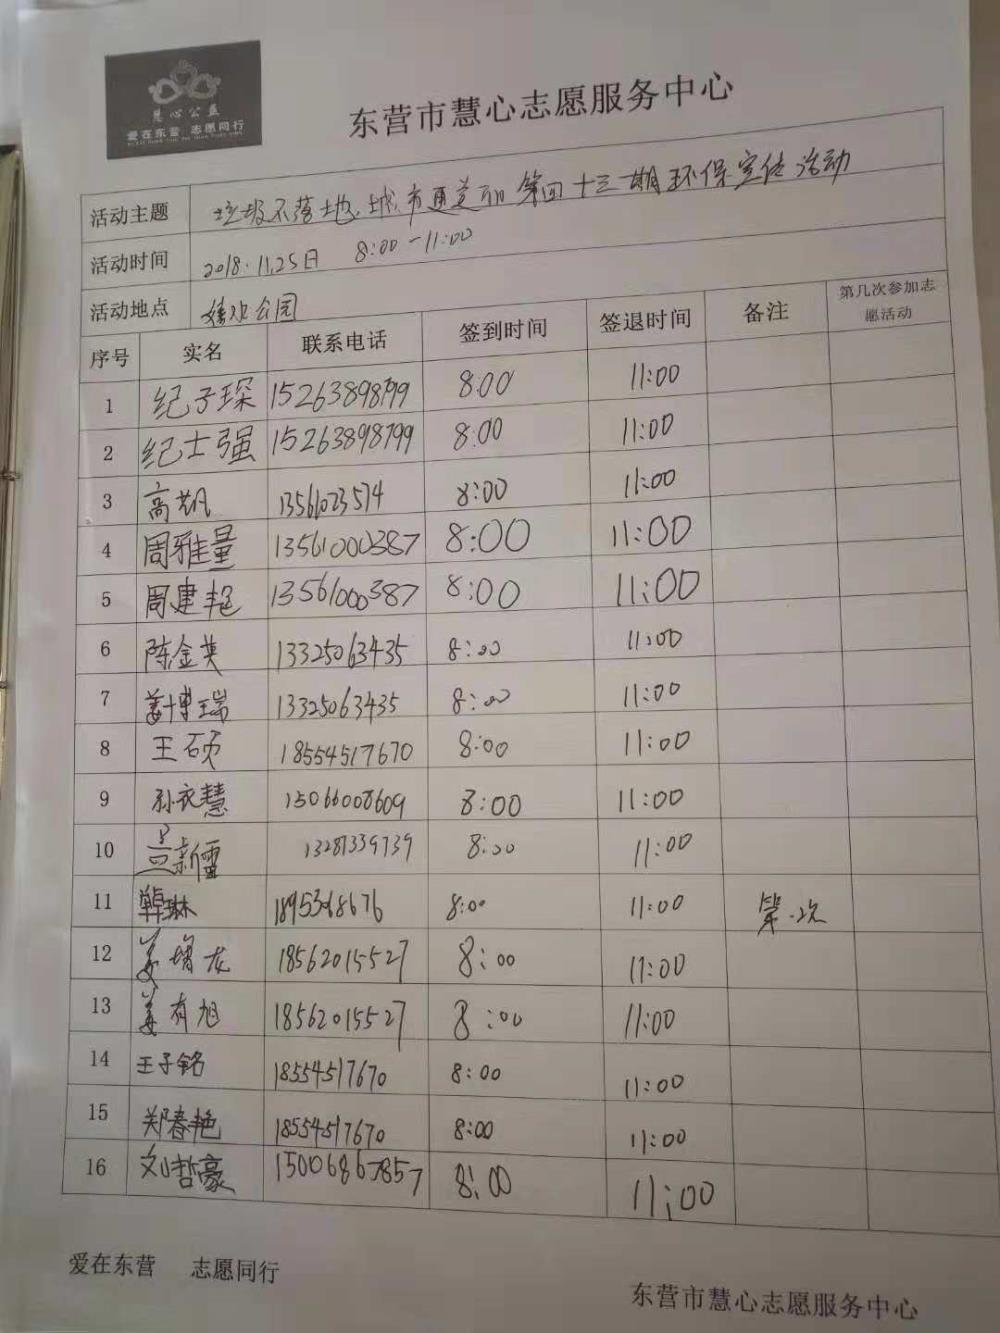 慧心公益
爱在东营 志愿同行
东营市慧心志愿服务中心
活动主题 垃圾不落地,城市更美丽 第四十三期环保宣传活动
活动时间 2018.11.25日 8:00-11:00
活动地点 公园
序号 实名 联系电话 签到时间 签退时间 备注 第几次参加志愿活动
1 纪子琛 15263898799 8:00 11:00
2 纪士强 15263898799 8:00 11:00
3 高凯 13561023574 8:00 11:00
4 周雅量 13561000387 8:00 11:00
5 周建艳 13561000387 8:00 11:00
6 陈金英 13325063435 8:00 11:00
7 姜博瑞 13325063435 8:00 11:00
8 王硕 18554517670 8:00 11:00
9 孙衣慧 15066008609 8:00 11:00
10 新雷 13287339739 8:00 11:00
11 琳 8:00 11:00 第一次
12 姜增龙 18562015527 8:00 11:00
13 姜有旭 18562015527 8:00 11:00
14 王子铭 18554517670 8:00 11:00
15 郑春艳 18554517670 8:00 11:00
16 刘哲豪 15006867857 8:00 11:00
爱在东营 志愿同行
东营市慧心志愿服务中心